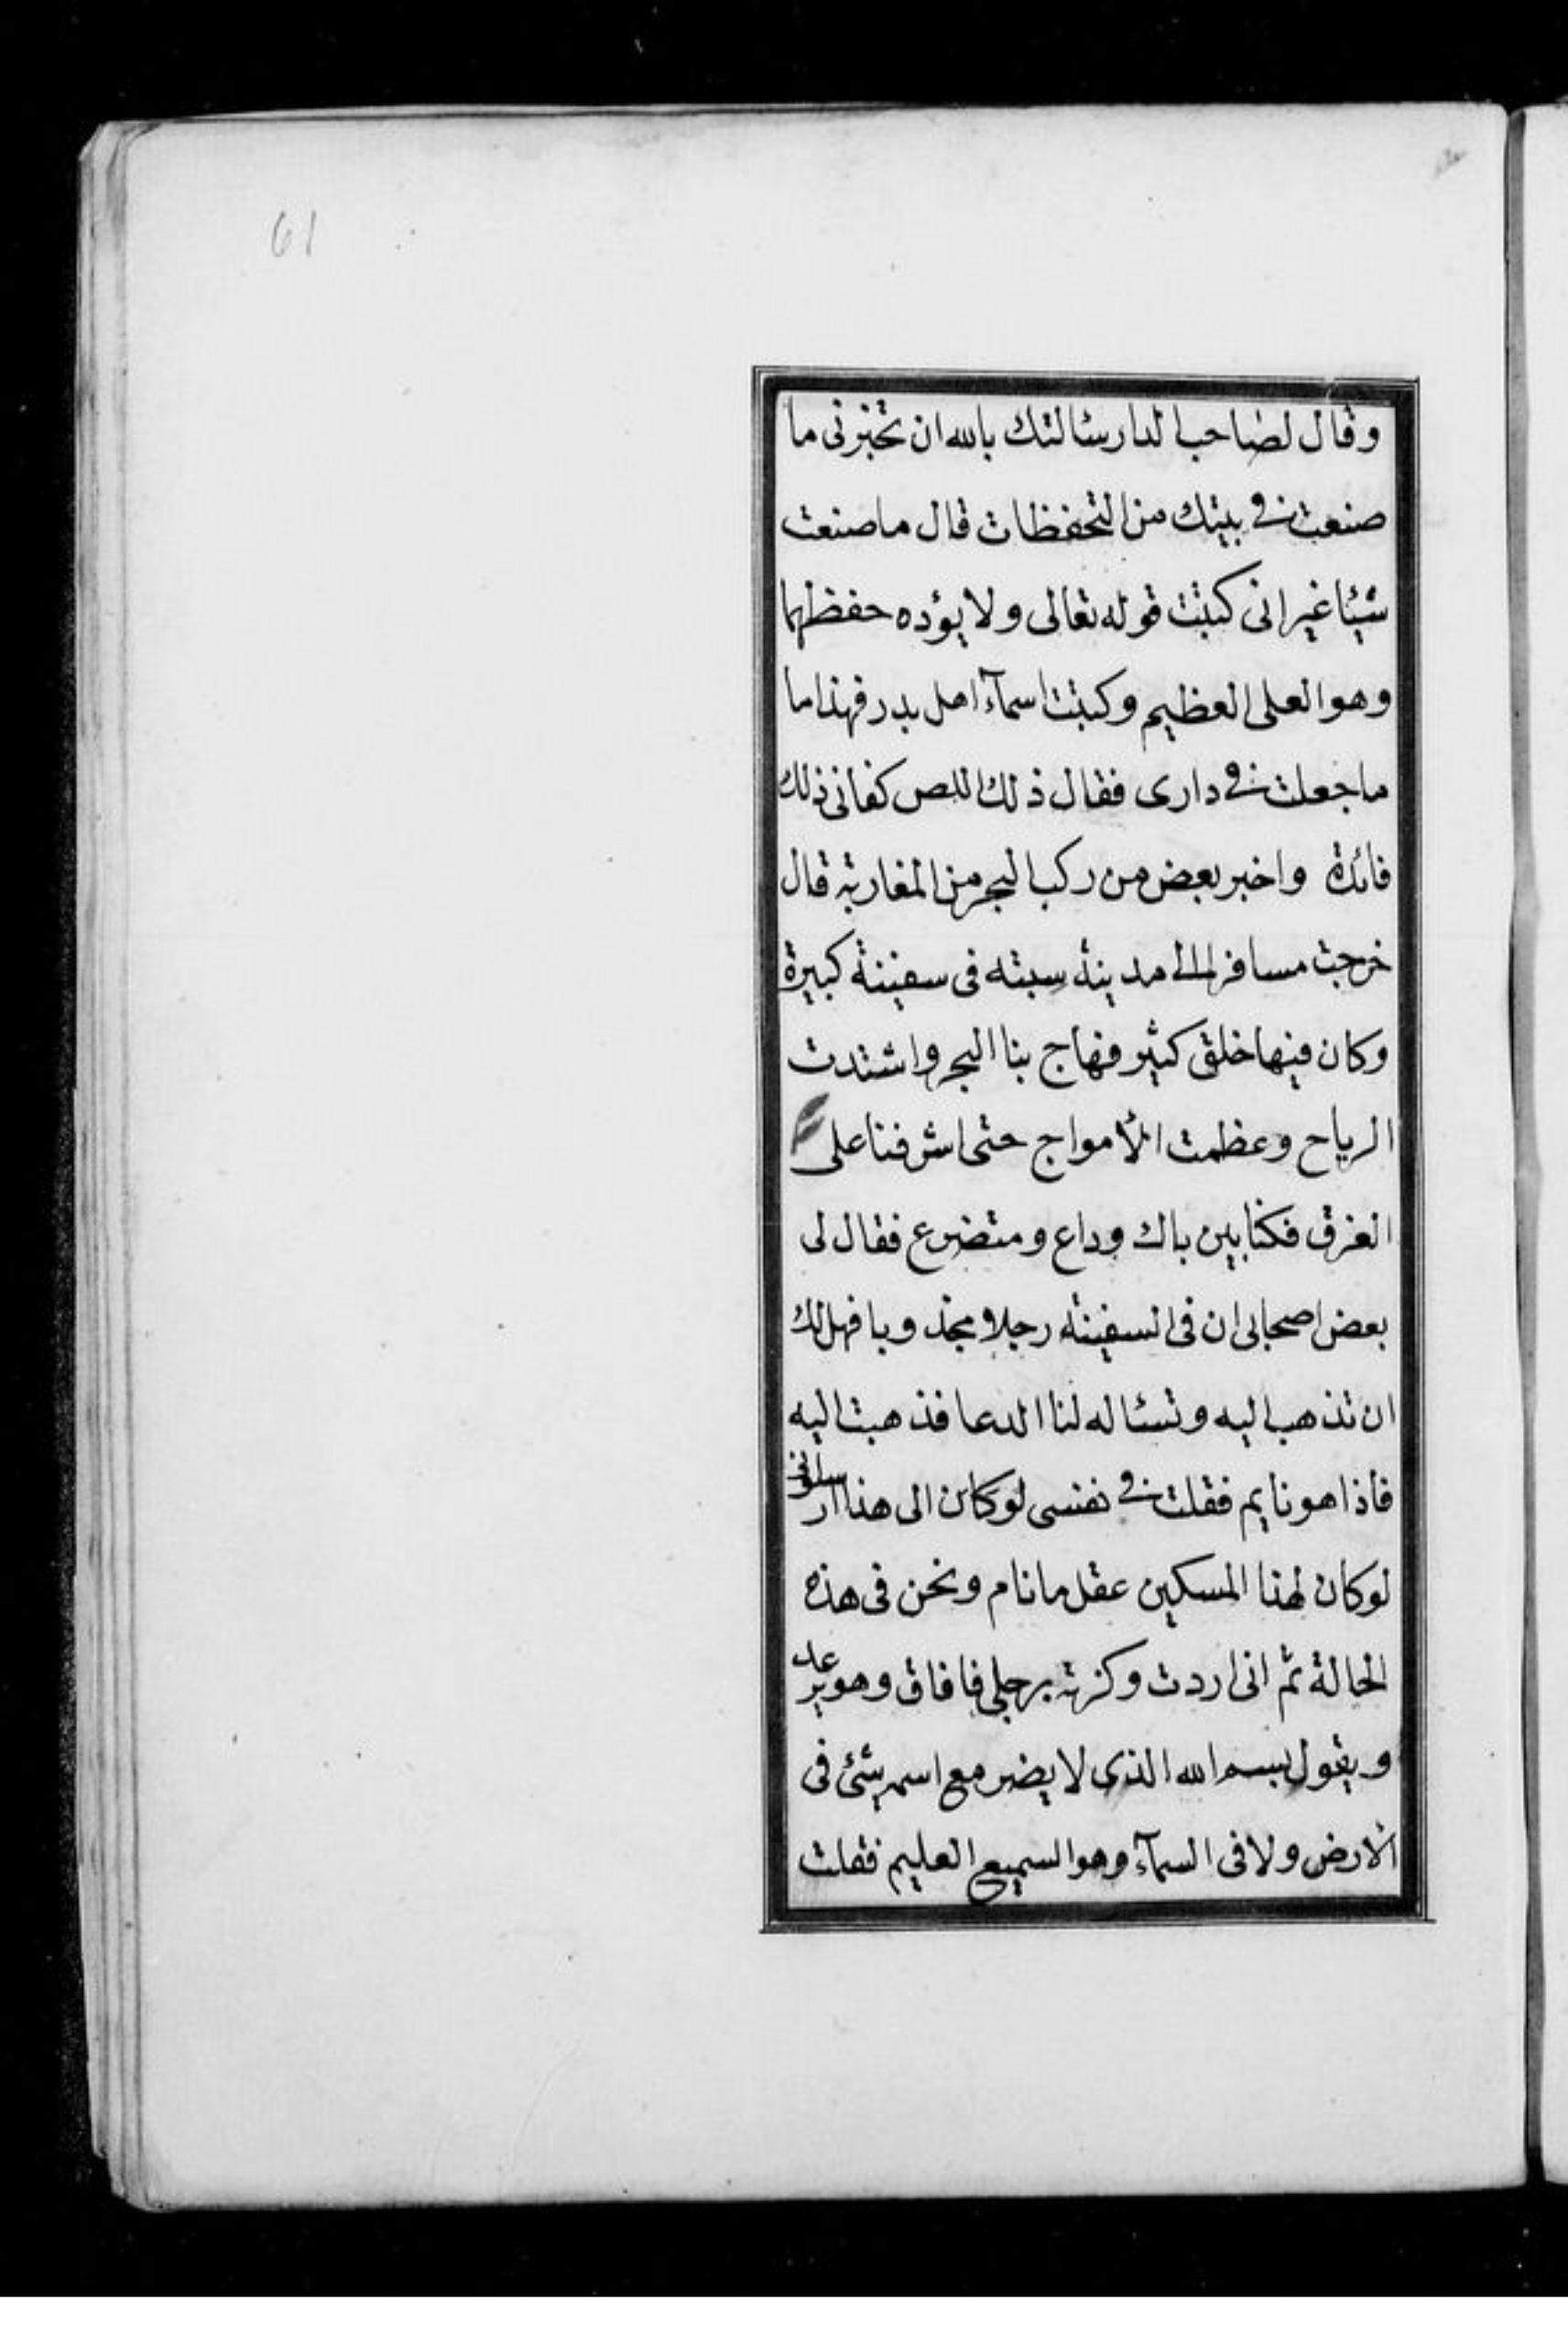 61
وقال لصاحب الدار سئالتك بالله ان تخبرنى ما
صنعت فى بيتك من التحفظات قال ما صنعت
شيئا غير انى كتبت قوله تعالى ولا يؤده حفظهما
وهو العلى العظيم وكتبت اسمآء اهل بدر فهذا ما
ما جعلت فى دارى فقال ذلك اللص كفانى ذلك
فائدة واخبر بعض من ركب البحر من المغاربة قال
خرجت مسافرا الى مدينة سبته فى سفينة كبيرة
وكان فيها خلق كثير فهاج بنا البحر واشتدت
الرياح وعظمت الأمواج حتى اشرفنا على
الغرق فكنا بين باك وداع ومتضرع فقال لى
بعض اصحابى ان فى السفينه رجلا مجذوبا فهل لك
ان تذهب اليه وتسئاله لنا الدعا فذهبت اليه
فأذا هو نايم فقلت فى نفسى لو كان الى هذا ارسلونى
لو كان لهذا المسكين عقل ما نام ونحن فى هذه
الحالة ثم انى اردت وكزته برجلى فافاق وهو يرعد
ويقول بسم الله الذى لا يضر مع اسمه شئ فى
الارض ولا فى السمآء وهو السميع العليم فقلت